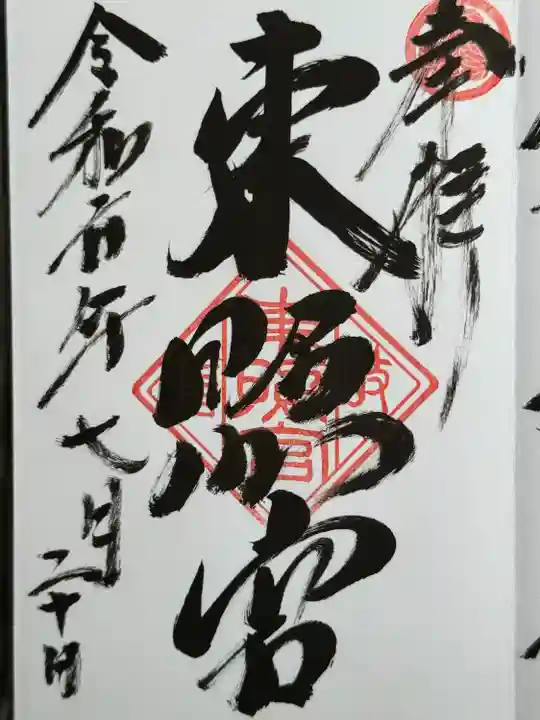 奉拝
東照宮
令和五年七月二十日